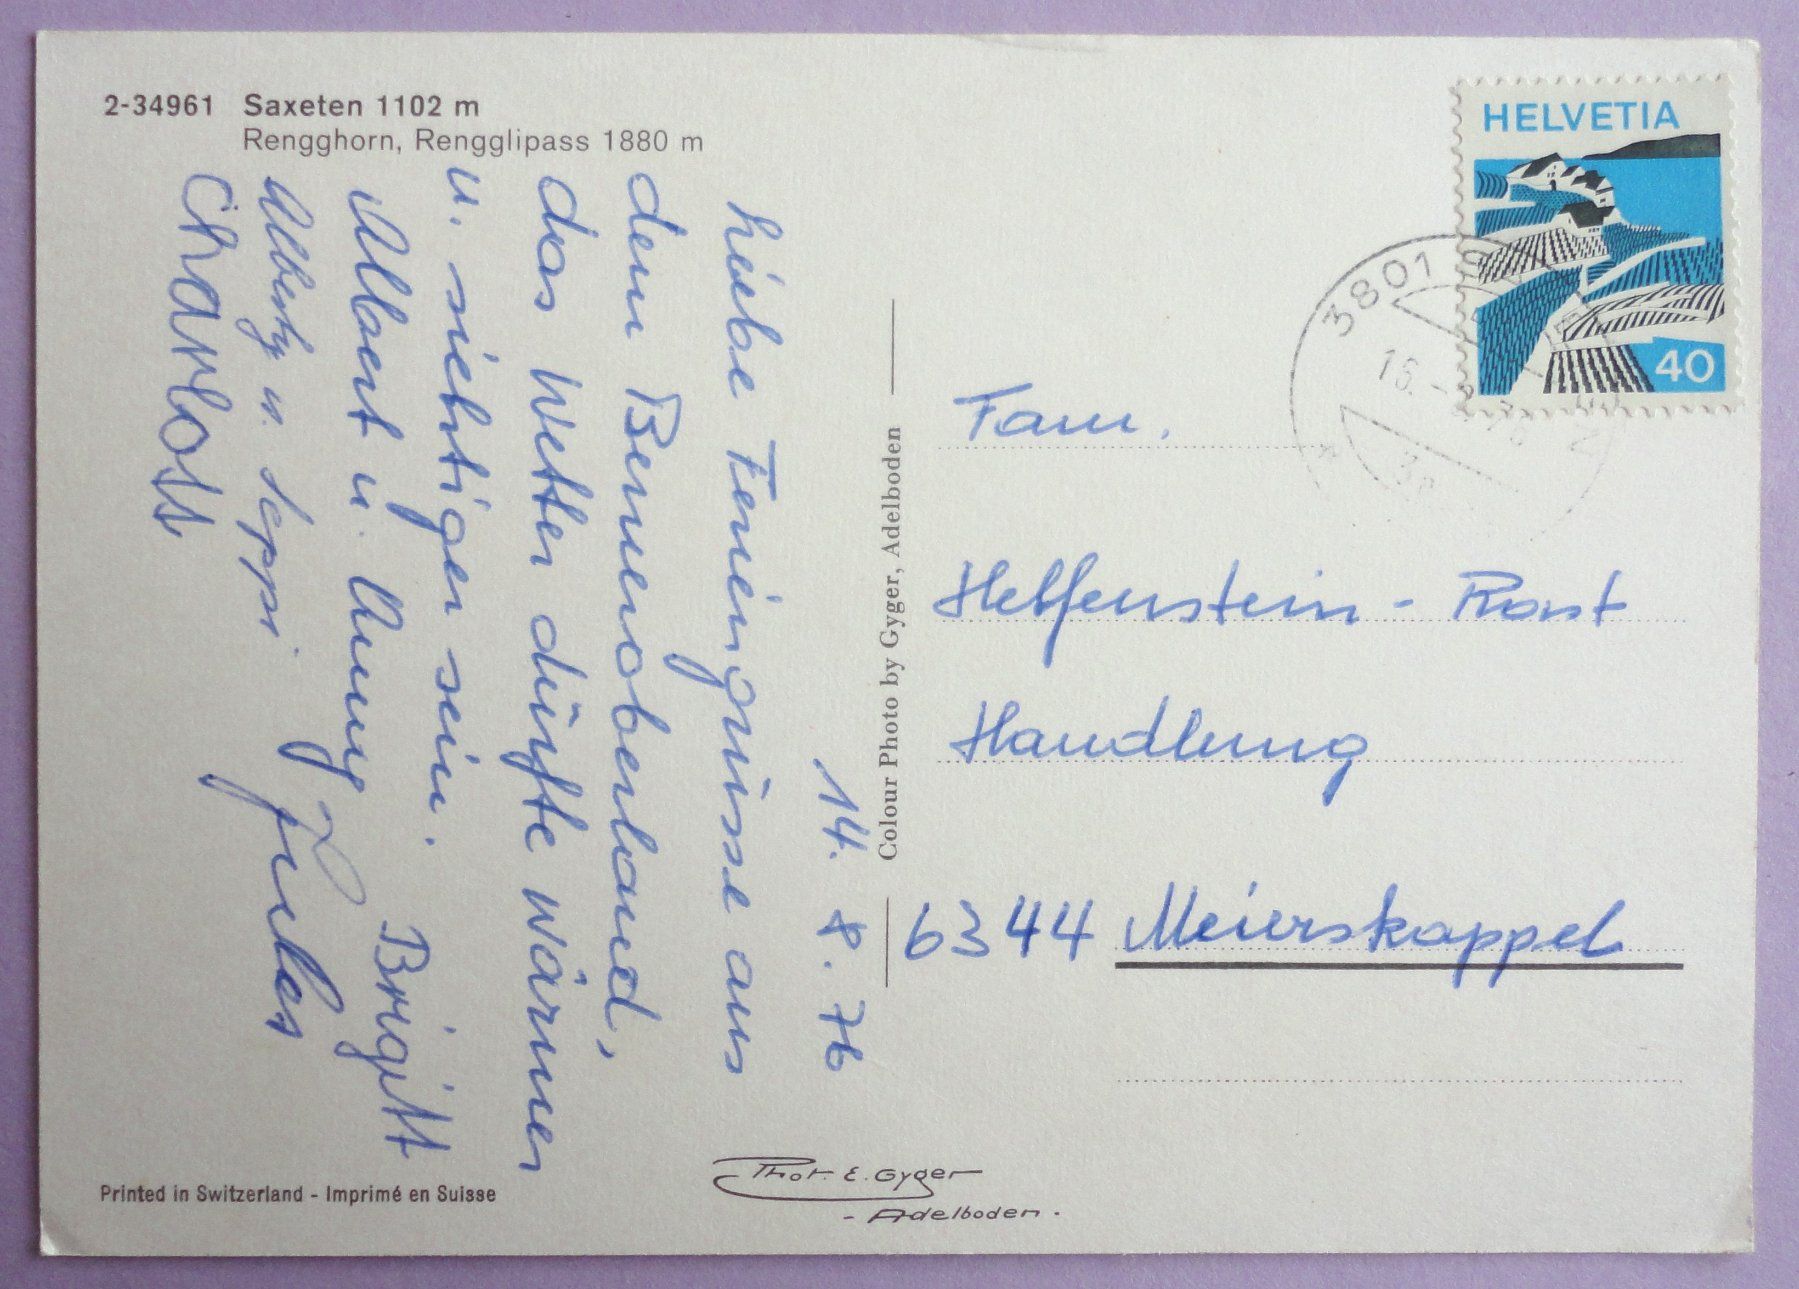 2-34961 Saxeten 1102 m
Rengghorn, Rengglipass 1880 m
14. 8. 76
Liebe Feriengrüsse aus
dem Berneroberland,
das Wetter dürfte wärmer
u. sichtiger sein.
Albert u. Anny Birgitt
u. Seppi Jules
Charlott
Colour Photo by Gyger, Adelboden
HELVETIA
40
3801
16.
Fam.
Helfenstein - Rast
Handlung
6344 Meierskappel
Printed in Switzerland - Imprimé en Suisse
Phot. E. Gyger
- Adelboden.